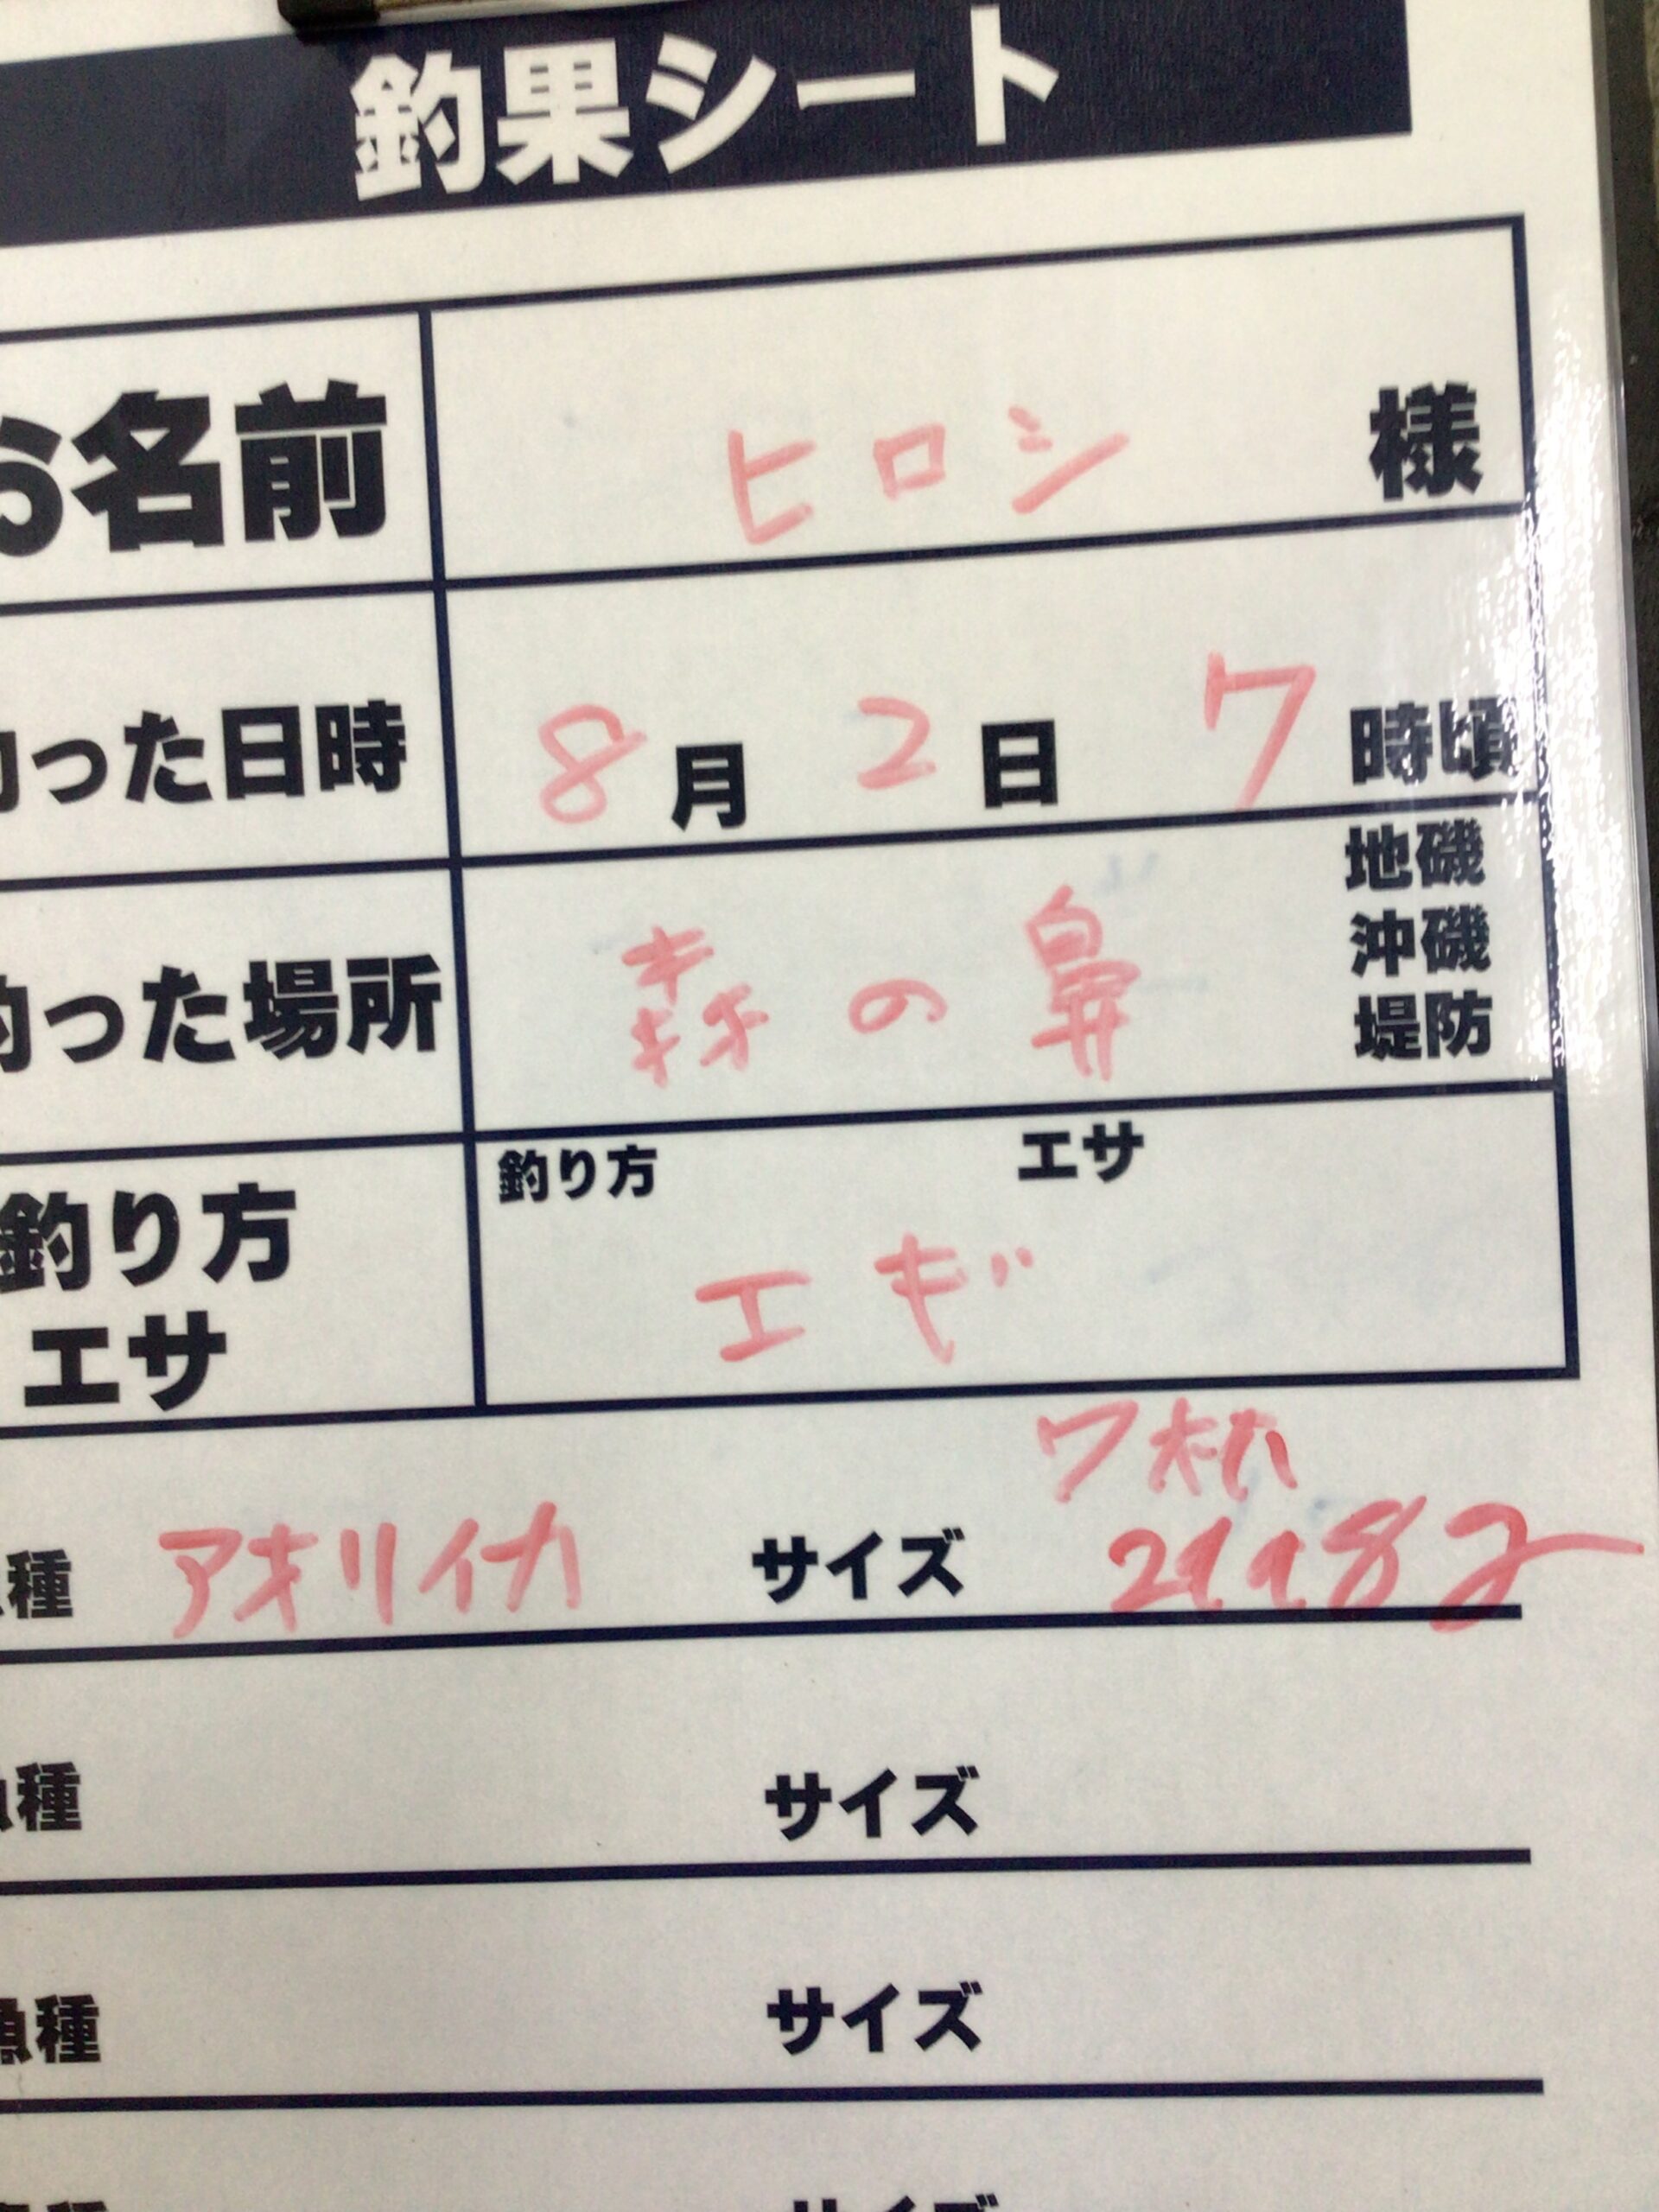 釣果シート
お名前 ヒロシ 様
釣った日時 8月2日 7時頃
釣った場所 森の鼻 地磯
沖磯
堤防
釣り方 エサ
釣り方
エサ
エギ
魚種 アオリイカ サイズ
魚種 サイズ
魚種 サイズ
サイズ